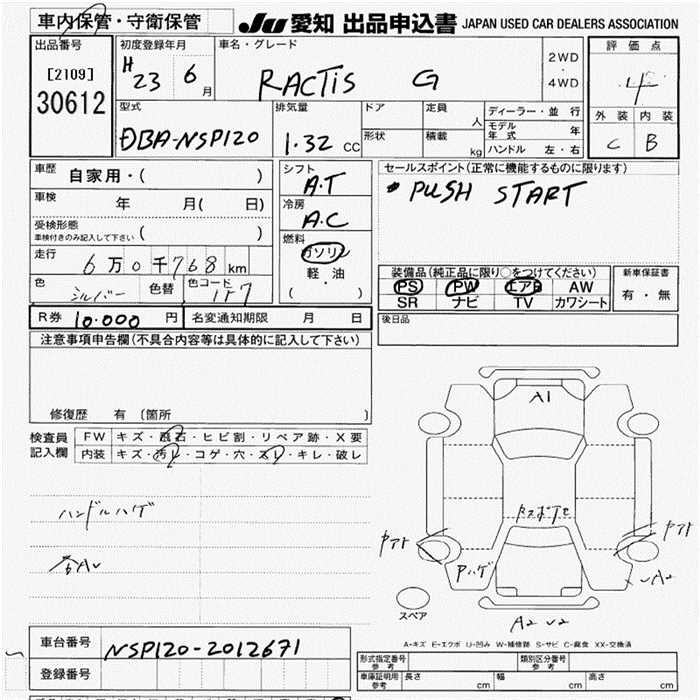 車内保管・守衛保管
JU 愛知 出品申込書 JAPAN USED CAR DEALERS ASSOCIATION
出品番号
[2109]
30612
初度登録年月
H 23 6 月
車名・グレード
RACTIS G
2WD
・
4WD
評価点
4
外装 内装
C B
型式
DBA-NSP120
排気量
1.32 CC
ドア
定員 人
形状
積載 kg
ディーラー・並行
モデル年式 年
ハンドル 左・右
車歴
自家用・( )
車検 年 月( 日)
受検形態
車検付きのみ記入して下さい ( )
走行
6万0千768 km
色 シルバー 色替 色コード 1F7
シフト
A.T
冷房
A.C
燃料
ガソリン
軽・油
( )
セールスポイント(正常に機能するものに限ります)
* PUSH START
装備品(純正品に限り○をつけてください)
PS PW エアB AW
SR ナビ TV カワシート
新車保証書
有・無
R券 10.000 円
名変通知期限 月 日
後日品
注意事項申告欄(不具合内容等は具体的に記入して下さい)
修復歴 有 〔箇所 〕
検査員
記入欄
FW キズ・飛石・ヒビ割・リペア跡・X要
内装 キズ・汚れ・コゲ・穴・スレ・キレ・破レ
ハンドルハゲ
各AU
A1
ヤアト
ヤアト
Pハゲ
A2
A2 U2
スペア
A-キズ E-エクボ U-凹み W-補修跡 S-サビ C-腐食 XX-交換済
車台番号
NSP120-2012671
登録番号
形式指定番号
参考
類別区分番号
参考
車庫証明用
参考
長さ cm 幅 cm 高さ cm